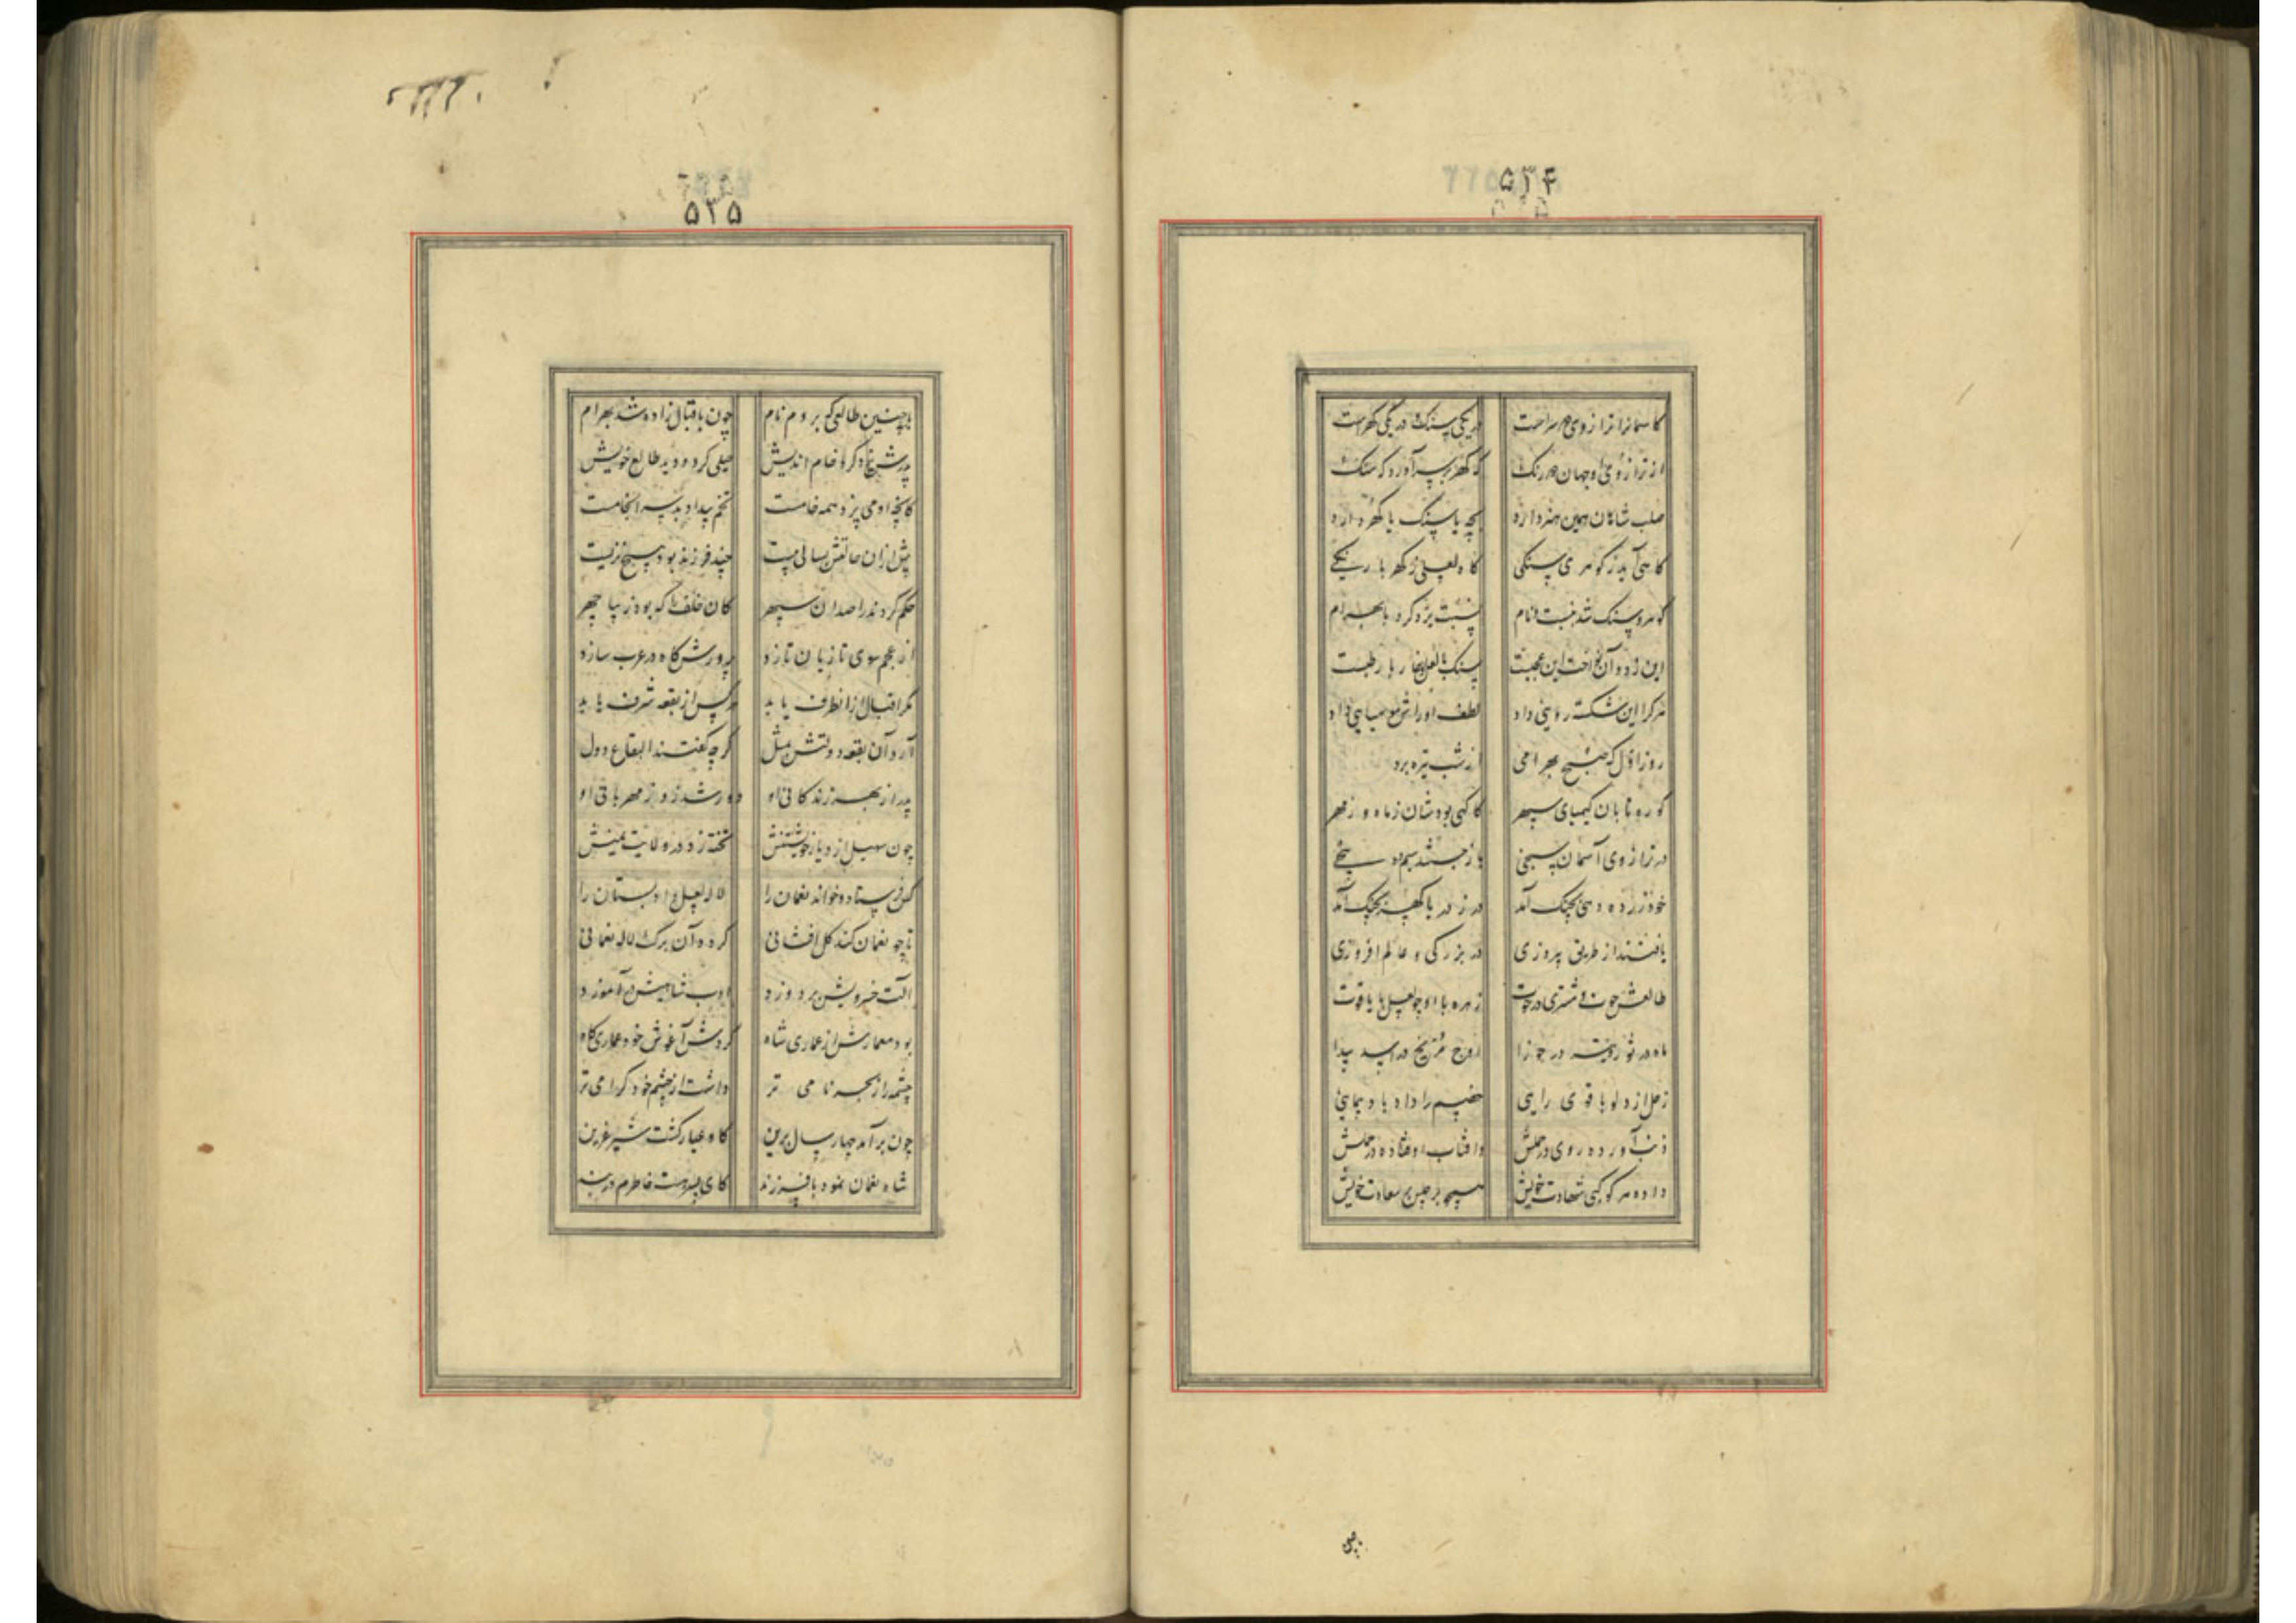 ۵۳۴
کاسمانرا ترازوی دو سراست در یکی سنک و در یکی کهرست
از ترازوی او جهان دو رنک که کهر بر سر آورد که سنک
صلب شاهان همین هنر دارد بچه یا سنک یا کهر دارد
کاهی آید ز کوهری سنکی کاه لعلی ز کهربا رنکی
کوهر و سنک شد بنسبت نام نسبت یزدکرد با بهرام
این زد و آن نواخت این عجبست سنک با لعل و خار با رطبست
هر کرا این شکسته رایی داد لطف او را مومیایی داد
روز اول که صبح بهرامی از شب تیره برد
کوره تابان کیمیای سپهر کاکهی بودشان ز ماه و ز مهر
در ترازوی آسمان سنجی باز جستند سیم ده پنجی
خود زر ده دهی بچنک آمد در ز دریا کهر ز سنک آمد
یافتند از طریق پیروزی در بزرکی و عالم افروزی
طالعش حوت و مشتری در حوت زهره با او چو لعل با یاقوت
ماه در ثور و تیر در جوزا اوج مریخ در اسد پیدا
زحل از دلو با قوی رایی خصم را داده باد پیمایی
ذنب آورده روی در زحلش وافتاب اوفتاده در حملش
داده هر کوکبی شهادت خویش همچو برجیس بر سعادت خویش
۵۳۵
با چنین طالعی که بردم نام چون باقبال زاده شد بهرام
پدرش یزدکرد خام اندیش خیلی کرد و دید طالع خویش
کانچه او می پزد همه خامست تخم بیداد بد سرانجامست
پیش ازان حالتش بسالی بیست چند فرزند بود هیچ نزیست
حکم کردند راصدان سپهر کان خلف را که بود زیبا چهر
از عجم سوی تازیان تازد پرورش کاه در عرب سازد
مکر اقبال ازان طرف یابد هر کس از بقعه شرف یابد
آرد آن بقعه دولتش بمثل کرچه کفتند البقاع دول
پدر از بهر زندکانی او دور شد زو ز مهربانی او
چون سهیل از دیار خویشتنش تخته زد در ولایت یمنش
کس فرستاد و خواند نعمان را لاله لعل داد بستان را
تا چو نعمان کند کل افشانی کرده آن برک لاله نعمانی
الت خسرویش بردوزد ادب شاهیش درآموزد
بود معمارش از عماری شاه کردش آغوش خود عماری کاه
چشمه را از بحر نامی تر داشت از چشم خود کرامی تر
چون بر آمد چهار سال برین کاو عیار کشت شیر عرین
شاه نعمان نمود با فرزند کای پسر هست خاطرم در بند